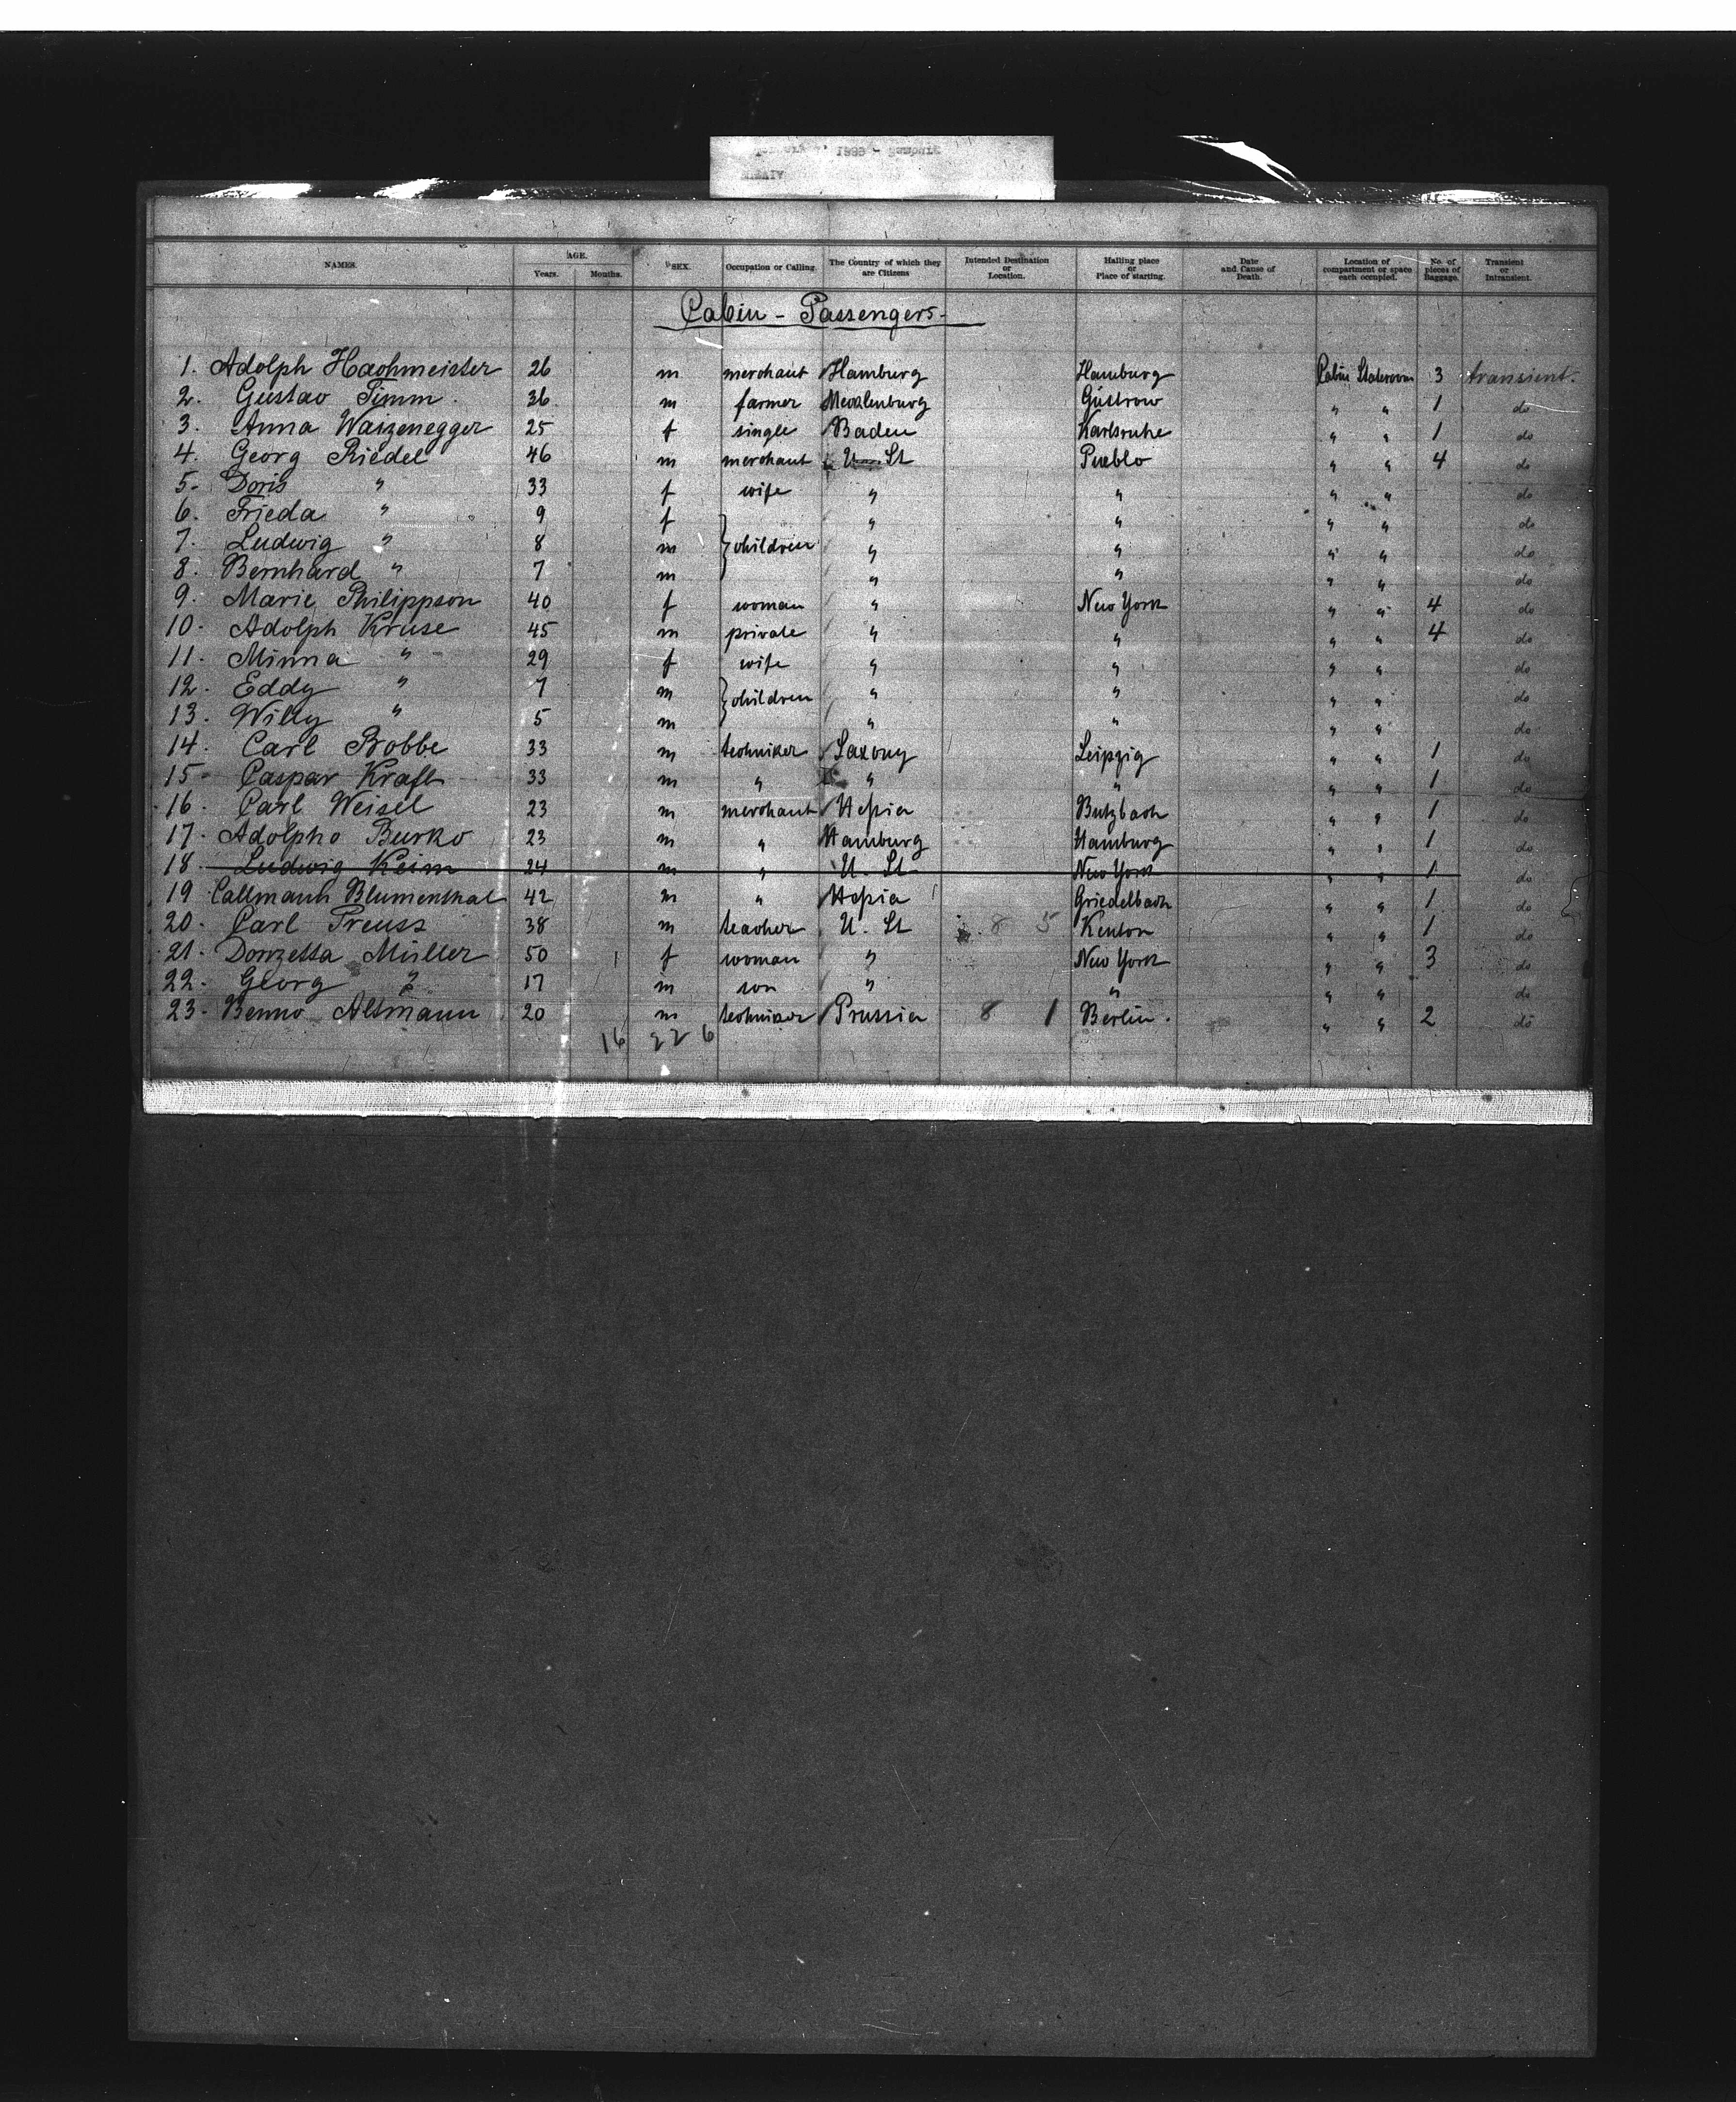 NAMES. AGE. Years. Months. SEX. Occupation or Calling. The Country of which they are Citizens Intended Destination or Location. Halling place or Place of starting. Date and Cause of Death. Location of compartment or space each occupied. No. of pieces of Baggage. Transient or Intransient.
Cabin - Passengers-
1. Adolph Hachmeister 26 m merchant Hamburg Hamburg Cabin Stateroom 3 transient.
2. Gustav Timm. 36 m farmer Mecklenburg Güstrow " " 1 do
3. Anna Waizenegger 25 f single Baden Karlsruhe " " 1 do
4. Georg Riedel 46 m merchant U. St Pueblo " " 4 do
5. Doris " 33 f wife " " " " do
6. Frieda " 9 f " " " " do
7. Ludwig " 8 m children " " " " do
8. Bernhard " 7 m " " " " do
9. Marie Philippson 40 f woman " New York " " 4 do
10. Adolph Kruse 45 m private " " " " 4 do
11. Minna " 29 f wife " " " " do
12. Eddy " 7 m children " " " " do
13. Willy " 5 m " " " " do
14. Carl Bobbe 33 m techniker Saxony Leipzig " " 1 do
15. Caspar Kraft 33 m " " " " " 1 do
16. Carl Weisel 23 m merchant Hessia Butzbach " " 1 do
17. Adolpho Burko 23 m " Hamburg Hamburg " " 1 do
18. Ludwig Keim 24 m " U. St New York " " 1 do
19 Callmann Blumenthal 42 m " Hessia Griedelbach " " 1 do
20. Carl Preuss 38 m teacher U. St 8 5 Kenton " " 1 do
21. Donzetta Müller 50 f woman " New York " " 3 do
22. Georg " 17 m son " " " " do
23. Benno Altmann 20 m techniker Prussia 8 1 Berlin. " " 2 do
16 22 6